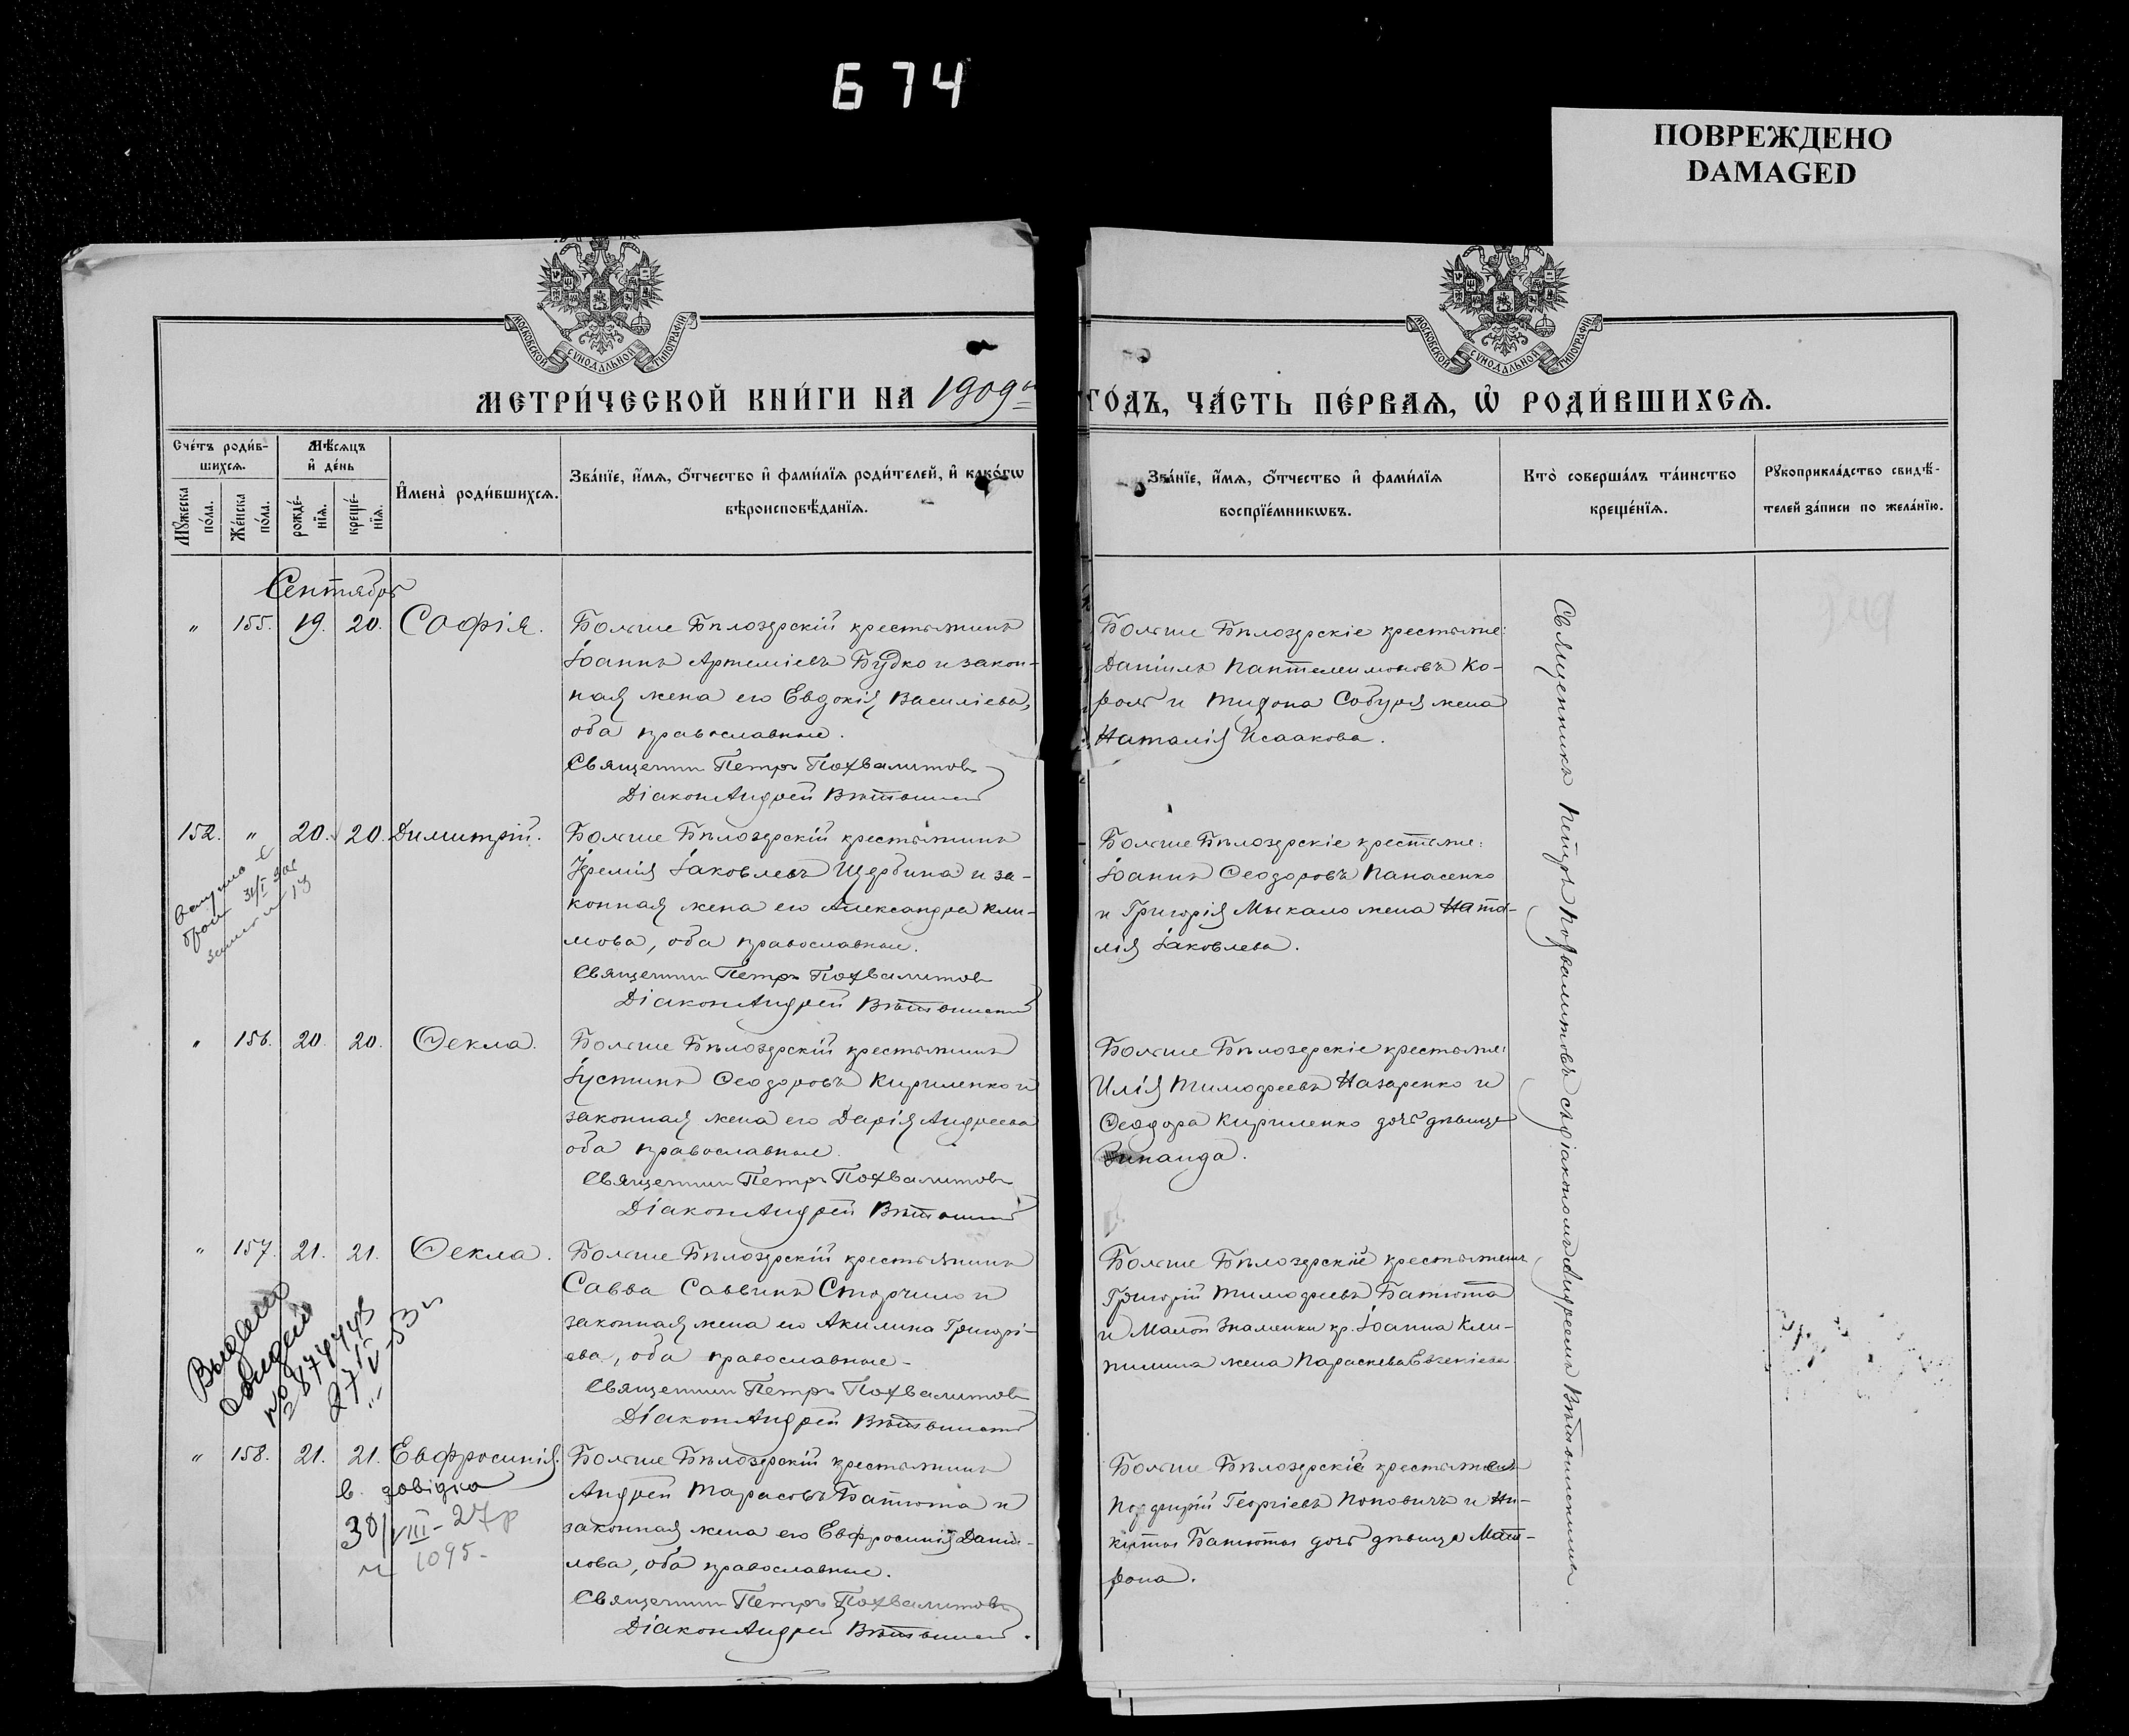 674
ПОВРЕЖДЕНО
DAMAGED
МОСКОВСКОЙ СѴНОДАЛЬНОЙ ТИПОГРАФІИ
МОСКОВСКОЙ СѴНОДАЛЬНОЙ ТИПОГРАФІИ
МЕТРИ́ЧЕСКОЙ КНИ́ГИ НА 1909й
ГО́ДЪ, ЧА́СТЬ ПЕ́РВАѦ, Ѡ РОДИ́ВШИХСѦ.
Сче́тъ роди́в-
шихсѧ.
Мꙋжеска по́ла.
Же́нска по́ла.
Мѣ́сяцъ
и де́нь
рожде́-
нїѧ.
креще́-
нїѧ.
Имена̀ роди́вшихсѧ.
Зва́нїе, и́мѧ, о́тчество и фами́лїѧ роди́телей, и како́гѡ
вѣроисповѣ́данїѧ.
Зва́нїе, и́мѧ, о́тчество и фами́лїѧ
воспрїе́мникѡвъ.
Кто̀ соверша́лъ та́инство
креще́нїѧ.
Рꙋкоприкла́дство свидѣ́-
телей за́писи по жела́нїю.
Сентябрь
" 155. 19. 20. Софія.
Больше Бѣлозерскій крестьянинъ
Іоаннъ Артеміевъ Будко и закон-
ная жена его Евдокія Василіева,
оба православные.
Священник Петръ Похвалитовъ
Діакон Андрей
Больше Бѣлозерскіе крестьяне:
Даніилъ Пантелеимоновъ Ко-
роль и Тихона Собура жена
Наталія Исаакова.
152. " 20. 20. Димитрій.
Больше Бѣлозерскій крестьянинъ
Іеремія Іаковлевъ Щербина и за-
конная жена его Александра Кли-
мова, оба православные.
Священник Петръ Похвалитовъ
Діакон Андрей
Больше Бѣлозерскіе крестьяне:
Іоаннъ Ѳеодоровъ Панасенко
и Григорія Мыкало жена Ната-
лія Іаковлева.
" 156. 20. 20. Ѳекла.
Больше Бѣлозерскій крестьянинъ
Іустинъ Ѳеодоровъ Кириленко и
законная жена его Дарія Андреева
оба православные.
Священник Петръ Похвалитовъ
Діакон Андрей
Больше Бѣлозерскіе крестьяне:
Илія Тимоѳеевъ Назаренко и
Ѳеодора Кириленко дочь дѣвица
Зинаида.
" 157. 21. 21. Ѳекла.
Больше Бѣлозерскій крестьянинъ
Савва Саввинъ Сторчило и
законная жена его Акилина Григорі-
ева, оба православные.
Священник Петръ Похвалитовъ
Діакон Андрей
Больше Бѣлозерскій крестьянинъ
Григорій Тимоѳеевъ Батюта
и Малой Знаменки кр. Іоанна Кли-
жена Параскева Евгеніева
" 158. 21. 21. Евфросинія.
в. довідка
30/VIII-27р
ч 1095.
Больше Бѣлозерскій крестьянинъ
Андрей Тарасовъ Батюта и
законная жена его Евфросинія Дани-
лова, оба православные.
Священник Петръ Похвалитовъ
Діакон Андрей
Больше Бѣлозерскій крестьянинъ
Порфирій Георгіевъ Поповичъ и Ни-
киты Батюты дочь дѣвица Мат-
рона.
Священникъ Петръ Похвалитовъ съ діакономъ Андреемъ